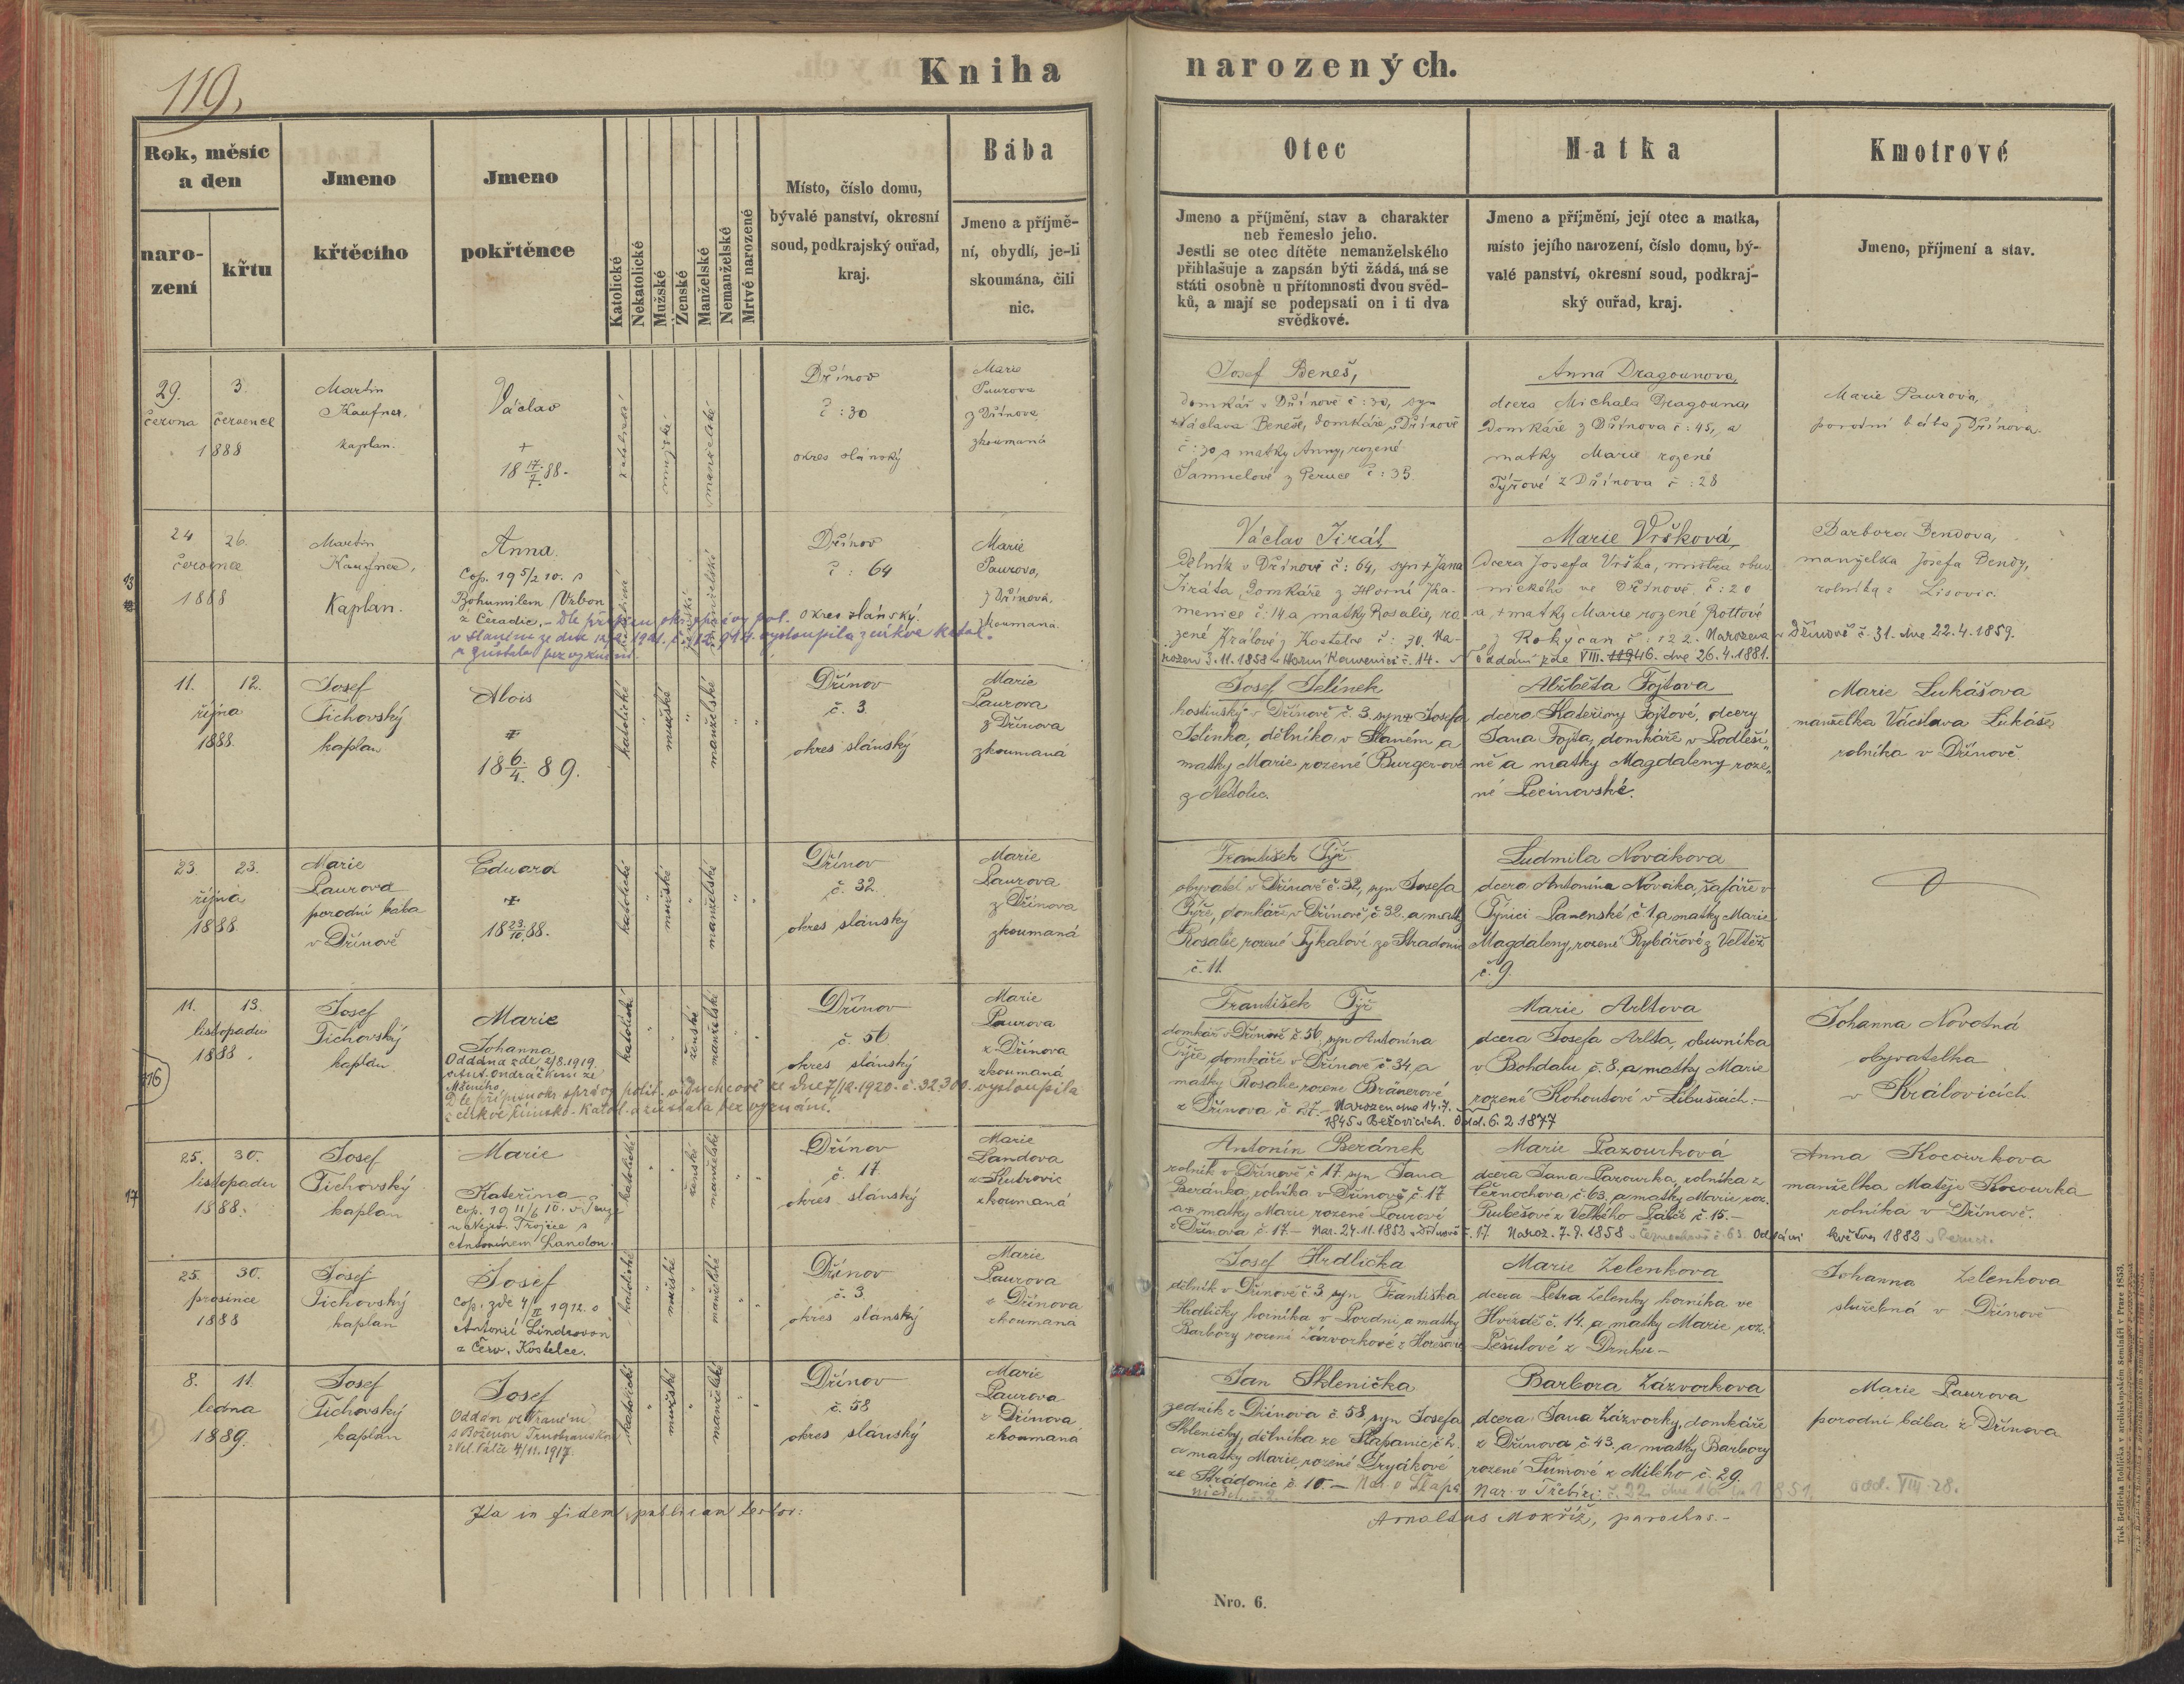 119.
Kniha narozených.
Rok, měsíc
a den
naro-
zení
křtu
Jmeno
křtěcího
Jmeno
pokřtěnce
Katolické
Nekatolické
Mužské
Ženské
Manželské
Nemanželské
Mrtvě narozené
Místo, číslo domu,
bývalé panství, okresní
soud, podkrajský ouřad,
kraj.
Bába
Jmeno a příjmě-
ní, obydlí, je-li
skoumána, čili
nic.
Otec
Jmeno a příjmění, stav a charakter
neb řemeslo jeho.
Jestli se otec dítěte nemanželského
přihlašuje a zapsán býti žádá, má se
státi osobně u přítomnosti dvou svěd-
ků, a mají se podepsati on i ti dva
svědkové.
Matka
Jmeno a příjmění, její otec a matka,
místo jejího narození, číslo domu, bý-
valé panství, okresní soud, podkraj-
ský ouřad, kraj.
Kmotrové
Jmeno, příjmení a stav.
29. 3.
června července
1888
Martin
Kaufner,
kaplan.
Václav
+
18 17/7. 88.
katolické
mužské
manželské
Dřínov
č: 30
okres slánský
Marie
Paurova
z Dřínova
zkoumaná
Josef Beneš,
domkář v Dřínově č: 30, syn
+Václava Beneše, domkáře v Dřínově
č: 30 a matky Anny, rozené
Samuelové z Peruce č: 35.
Anna Dragounova,
dcera Michala Dragouna,
domkáře z Dřínova č: 45, a
matky Marie rozené
Týřové z Dřínova č: 28
Marie Paurova,
porodní bába z Dřínova.
24 26.
července
1888
Martin
Kaufner,
Kaplan.
Anna.
Cop. 19 5/2 10. s
Bohumilem Vrbou
z Čeradic. - Dle přípisu okr. správy pol.
v Slaném ze dne 1921. vystoupila z církve katol.
a zůstala bez vyznání.
Dřínov
č: 64
okres slánský.
Marie
Paurova,
z Dřínova,
zkoumaná.
Václav Jirát,
Dělník v Dřínově č: 64, syn + Jana
Jiráta, domkáře z Horní Ka-
menice č: 14 a matky Rosalie, ro
zené Králové z Kostelce č: 30. Na-
rozen 3.11.1858 v Horní Kamenici č. 14.
Marie Vršková,
dcera Josefa Vrška, mistra obuv.
nického ve Dřínově č: 20
a, + matky Marie rozené Rottové
z Rokycan č: 122. Narozena v Dřínově č. 31. dne 22.4.1859.
Oddáni zde VIII. 46. dne 26.4.1881.
Barbora Bendova,
manželka Josefa Bendy,
rolníka z Lisovic.
11. 12.
října
1888.
Josef
Tichovský
kaplan
Alois
18 6./4. 89.
katolické
mužské
manželské
Dřínov
č. 3.
okres slánský
Marie
Paurova
z Dřínova
zkoumaná
Josef Jelínek
hostinský v Dřínově č. 3. syn + Josefa
Jelínka, dělníka v Slaném a
matky Marie rozené Burger-ové
z Netolic.
Alžběta Fojtova
dcera Kateřiny Fojtové, dcery
Jana Fojta, domkáře v Podleší„
ně a matky Magdaleny roze„
né Pecinovské.
Marie Lukášova
manželka Václava Lukáše,
rolníka v Dřínově.
23. 23.
října
1888.
Marie
Paurova
porodní bába
v Dřínově
Eduard
18 23/10. 88.
katolické
mužské
manželské
Dřínov
č. 32.
okres slánský
Marie
Paurova
z Dřínova
zkoumaná
František Týř
obyvatel v Dřínově č. 32, syn Josefa
Týře, domkáře v Dřínově, č. 32. a matky
Rosalie rozené Týkalové ze Stradonic
č. 11.
Ludmila Novákova
dcera Antonína Nováka, šafáře v
Týnici Panenské č 1, a matky Marie
Magdaleny, rozené Rybářové z Veltěž
č. 9.
11. 13.
listopadu
1888.
116
Josef
Tichovský
kaplan
Marie
Johanna
Oddána zde 2/8.1919.
s Ant. Ondráčkem ze
Mšeného.
Dle přípisu okr. správy polit. v Duchcově ze dne 7/12.1920. č. 32300. vystoupila
z církve římsko-katol. a zůstala bez vyznání.
katolické
ženské
manželské
Dřínov
č. 56
okres slánský
Marie
Paurova
z Dřínova
zkoumaná
František Týř
domkář v Dřínově č. 56, syn Antonína
Týře domkáře v Dřínově č. 34, a
matky Rosalie rozené Bränerové
z Dřínova č. 27. - Narozen dne 14.7.
1845 v Beřovicích. Odd. 6. 2. 1877
Marie Arltova
dcera Josefa Arlta, obuvníka
v Bohdalu č. 8. a matky Marie
rozené Kohoutové v Libušicích.-
Johanna Novotná
obyvatelka
v Královicích.
25. 30.
listopadu
1888.
17
Josef
Tichovský
kaplan
Marie
Kateřina
Cop. 19 11/6 10. v Praze
u Nejsv. Trojice s
Antonínem Landou.
katolické
ženské
manželské
Dřínov
č. 17.
okres slánský
Marie
Landova
z Kutrovic
zkoumaná
Antonín Beránek
rolník v Dřínově č 17. syn Jana
Beránka, rolníka v Dřínově, č. 17
a + matky Marie rozené Paurové
z Dřínova č. 17. - Nar. 24.11.1853 v Dřínově č. 17.
Marie Pazourková
dcera Jana Pazourka, rolníka z
Černochova, č. 63, a matky Marie roz.
Rubešové z Velkého Palče č. 15.-
Naroz. 7.9.1858 v Černochově č. 63. Oddáni května 1882 v Peruci.
Anna Kocourkova
manželka Matěje Kocourka
rolníka v Dřínově.
25. 30.
prosince
1888
Josef
Tichovský
kaplan
Josef
Cop. zde 4/II 1912. s
Antonií Lindrovou
z Červ. Kostelce.
katolické
mužské
manželské
Dřínov
č. 3.
okres slánský
Marie
Paurova
z Dřínova
zkoumana
Josef Hrdlička
dělník v Dřínově č 3. syn Františka
Hrdličky horníka v Pozdni, a matky
Barbory rozené Zázvorkové z Hořešovic
Marie Zelenkova
dcera Petra Zelenky horníka ve
Hvězdě č. 14. a matky Marie roz.
Pešulové z Drnku.-
Johanna Zelenkova
služebná v Dřínově
8. 11.
ledna
1889.
Josef
Tichovský
kaplan
Josef
Oddán ve Vraném
s Boženou
z Vel. Palče 4/11.1917.
katolické
mužské
manželské
Dřínov
č. 58
okres slánský
Marie
Paurova
z Dřínova
zkoumaná
Jan Sklenička
zedník z Dřínova č. 58. syn Josefa
Skleničky, dělníka ze Šlapanic, č 2.
a matky Marie, rozené Dryákové
ze Stradonic č. 10. - Nar. v Šlapa
nicích č. 2.
Barbora Zázvorkova
dcera Jana Zázvorky, domkáře
z Dřínova č. 43. a matky Barbory
rozené Šímové z Milého č. 29.
Nar. v Třebízi č. 22. dne 16. 1851. odd. VIII. 28.
Marie Paurova
porodní bába z Dřínova
Ita in fidem publicam testor:
Arnoldus Mokříž, parochus.-
Nro. 6.
Tisk Bedřicha Rohlíčka v arcibiskupském Semináři v Praze 1853.